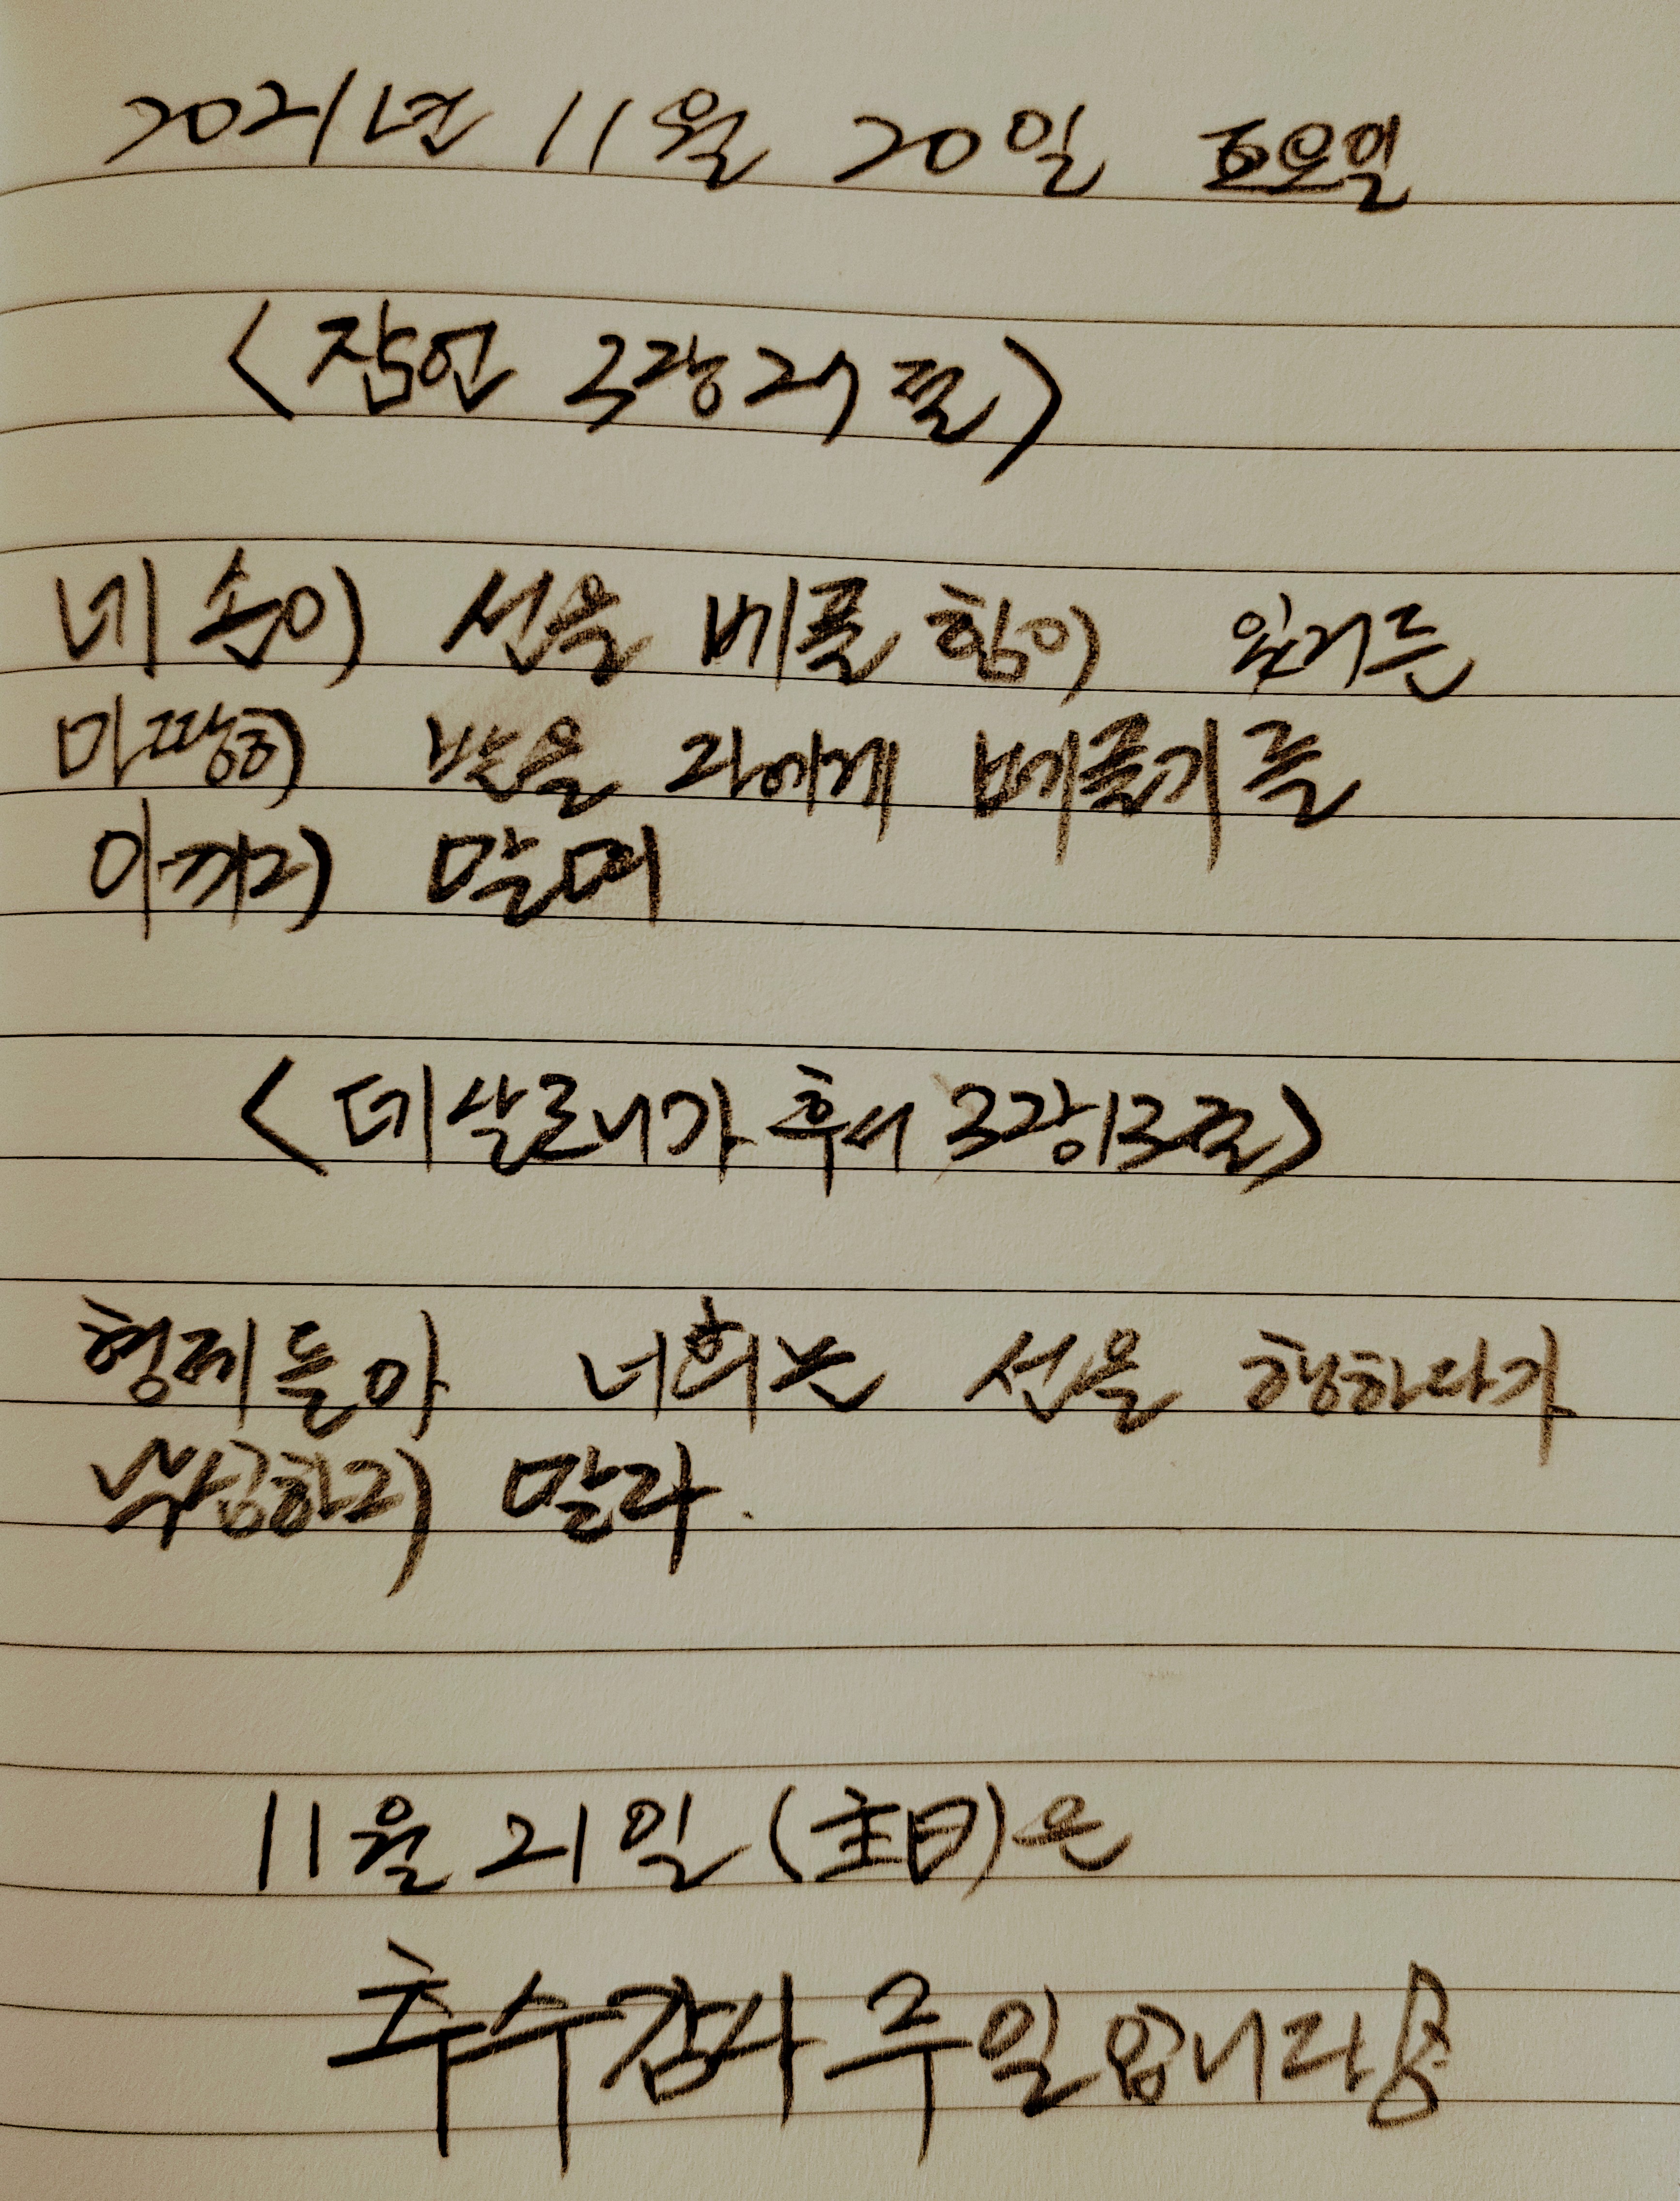 2021년 11월 20일 토요일
<잠언 3장 27절>
네 손이 선을 베풀 힘이 있거든
마땅히 받을 자에게 베풀기를
아끼지 말며
<데살로니가 후서 3장 13절>
형제들아 너희는 선을 행하다가
낙심하지 말라.
11월 21일 (主日)은
추수감사 주일입니다